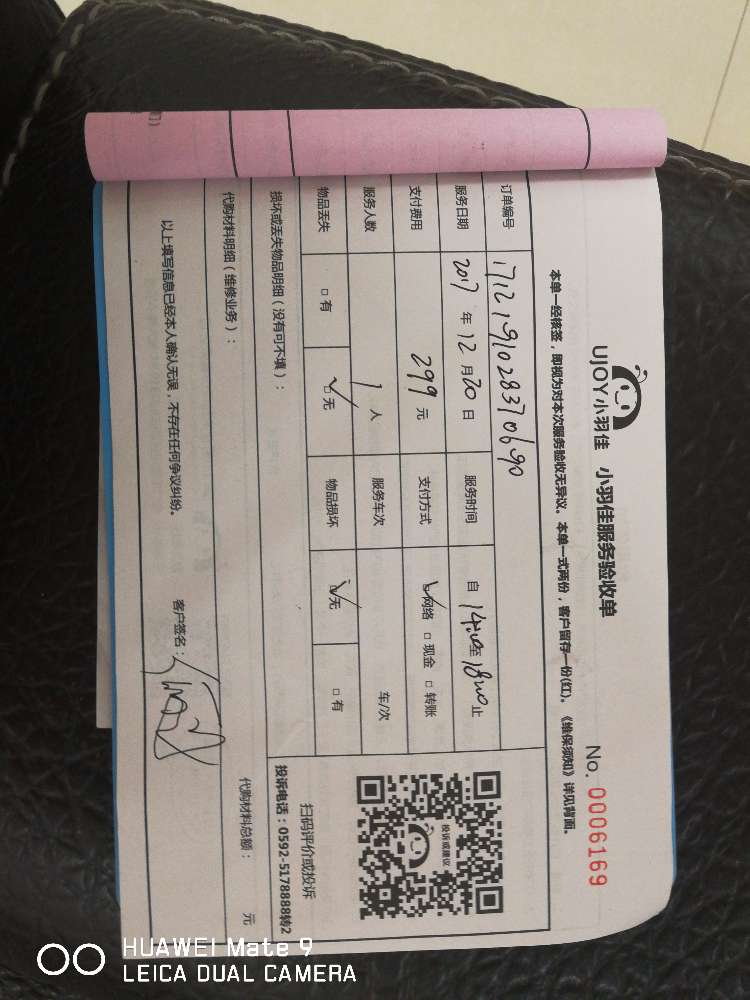 UJOY小羽佳 小羽佳服务验收单
No. 0006169
本单一经核签，即视为对本次服务验收无异议。本单一式两份，客户留存一份(红)。《维保须知》详见背面。
订单编号 1712191028370690
服务日期 2017 年 12 月 20 日 服务时间 自 14:00 至 18:00 止
支付费用 299 元 支付方式 ☑网络 □现金 □转账
服务人数 1 人 服务车次 车/次
物品丢失 □有 ☑无 物品损坏 ☑无 □有
损坏或丢失物品明细（没有可不填）：
代购材料明细（维修业务）： 代购材料总额： 元
投诉或建议
扫码评价或投诉
投诉电话：0592-5178888转2
以上填写信息已经本人确认无误，不存在任何争议纠纷。
客户签名：
HUAWEI Mate 9
LEICA DUAL CAMERA